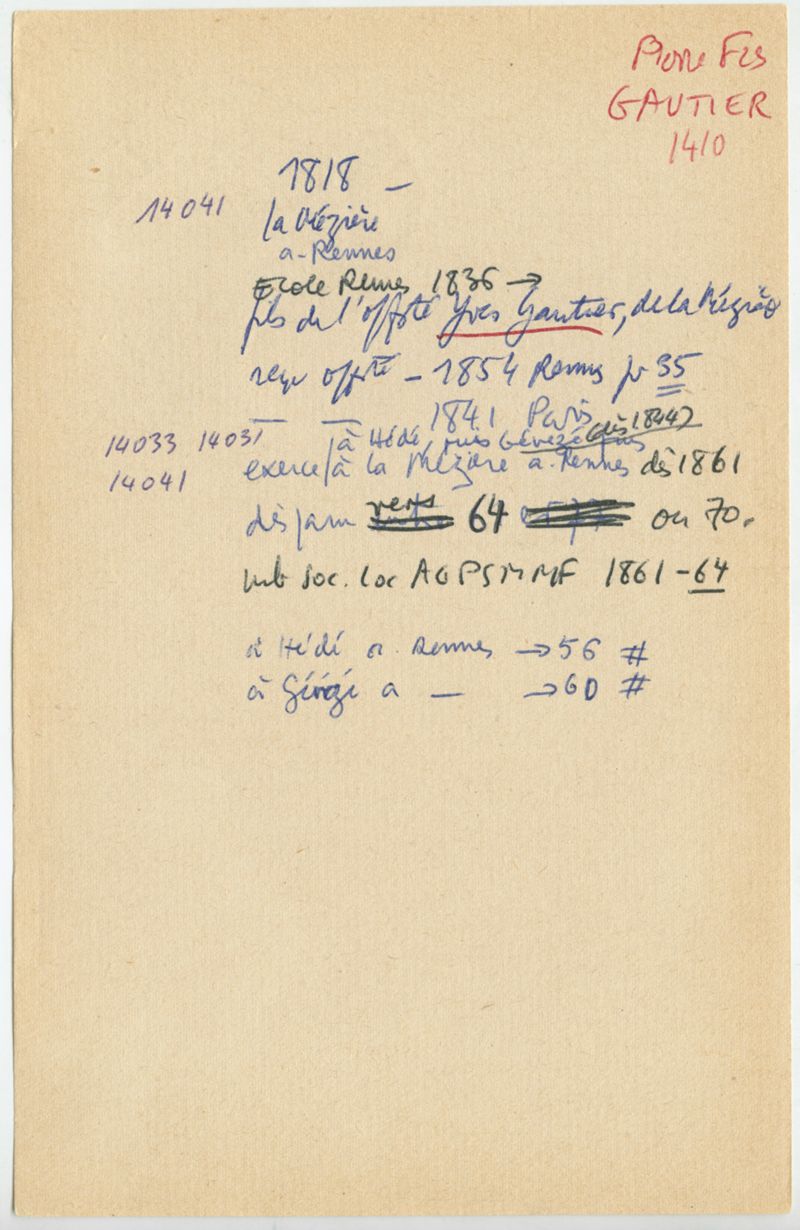 Pierre Frs
GAUTIER
1410
1818 –
14041 la Mézière
a. Rennes
Ecole Rennes 1836 →
fils de l'offté Yves Gautier, de la Mézière
reçu offté – 1854 Rennes pr 35
— — 1841 Paris
à Hédé, puis Gévezé (dès 1844) puis
14033 14031 exerce à la Mézière a. Rennes dès 1861
14041
dispam vers 64 ou 70.
mb Soc. Loc AGPSMMF 1861 – 64
à Hédé a. Rennes → 56 #
à Gévezé a — → 60 #